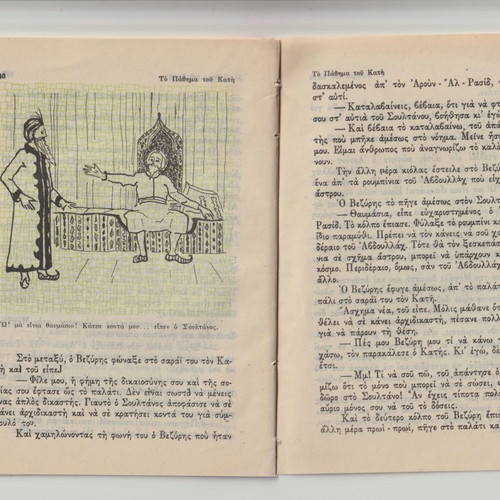 Τὸ Πάθημα τοῦ Κατῆ
Ὤ! μὰ εἶναι θαυμάσιο! Κάτσε κοντά μου... εἶπεν ὁ Σουλτάνος.
Στὸ μεταξύ, ὁ Βεζύρης φώναξε στὸ σαράϊ του τὸν Κα-
τὴ καὶ τοῦ εἶπε
— Φίλε μου, ἡ φήμη τῆς δικαιοσύνης σου καὶ τῆς σο-
φίας σου ἔφτασε ὣς τὸ παλάτι. Δὲν εἶναι σωστὸ νὰ μένεις
ἕνας ἁπλὸς δικαστής. Γιαυτὸ ὁ Σουλτάνος ἀποφάσισε νὰ σὲ
κάνει ἀρχιδικαστὴ καὶ νὰ σὲ κρατήσει κοντά του γιὰ σύμ-
βουλό του.
Καὶ χαμηλώνοντας τὴ φωνή του ὁ Βεζύρης ποὺ ἦταν
Τὸ Πάθημα τοῦ Κατῆ
δασκαλεμένος ἀπ' τὸν Ἀροὺν - Ἂλ - Ρασίδ,
στ' αὐτί.
— Καταλαβαίνεις, βέβαια, ὅτι γιὰ νὰ φτ
σου στ' αὐτιὰ τοῦ Σουλτάνου, βοήθησα κι' ἐγώ
— Καὶ βέβαια τὸ καταλαβαίνω, τοῦ ἀπο
τῆς ποὺ μπῆκε ἀμέσως στὸ νόημα. Μεῖνε ἥσυ
μου. Εἶμαι ἄνθρωπος ποὺ ἀναγνωρίζω τὸ καλὸ
νουν.
Τὴν ἄλλη μέρα κιόλας ἔστειλε στὸ Βεζύρη
ἕνα ἀπ' τὰ ρουμπίνια τοῦ Ἀβδουλλὰχ ποὺ εἶχ
ἄστρου.
Ὁ Βεζύρης τὸ πῆγε ἀμέσως στὸν Σουλτ
— Θαυμάσια, εἶπε εὐχαριστημένος ὁ
Ρασίδ. Τὸ κόλπο ἔπιασε. Φύλαξε τὸ ρουμπίνι κα
ἴδιο παραμύθι. Πρέπει νὰ τὸν κάνεις νὰ σοῦ χα
δέραιο τοῦ Ἀβδουλλάχ. Τότε θὰ τὸν ξεσκεπάσ
νια σὲ σχῆμα ἄστρου, μπορεῖ νὰ ὑπάρχουν κ
κόσμο. Περιδέραιο, ὅμως, σὰν τοῦ Ἀβδουλλὰχ
ἄλλο.
Ὁ Βεζύρης ἔφυγε ἀμέσως, ἀπ' τὸ παλάτ
πάλι στὸ σαράϊ του τὸν Κατῆ.
Ἄσχημα νέα, τοῦ εἶπε. Μόλις μάθανε ὅτ
θέλει νὰ σὲ κάνει ἀρχιδικαστή, πέσανε πολλο
γιὰ νὰ πάρουν τὴ θέση.
— Πές μου Βεζύρη μου τί νὰ κάνω
χάσω, τὸν παρακάλεσε ὁ Κατής. Κι' ἐγώ,
έτσι.
— Μμ! Τί νὰ σοῦ πῶ, τοῦ ἀπάντησε ὁ
μίζω ὅτι τὸ μόνο ποὺ μπορεῖ νὰ σὲ σώσει,
δῶρο στὸ Σουλτάνο! Ἂν ἔχεις τίποτα πολύ
αὔριο μόνος σου νὰ τοῦ τὸ δόσεις.
Καὶ τὸ δεύτερο κόλπο τοῦ Βεζύρη ἔπια
ἄλλη μέρα πρωῒ - πρωΐ, πῆγε στὸ παλάτι κα